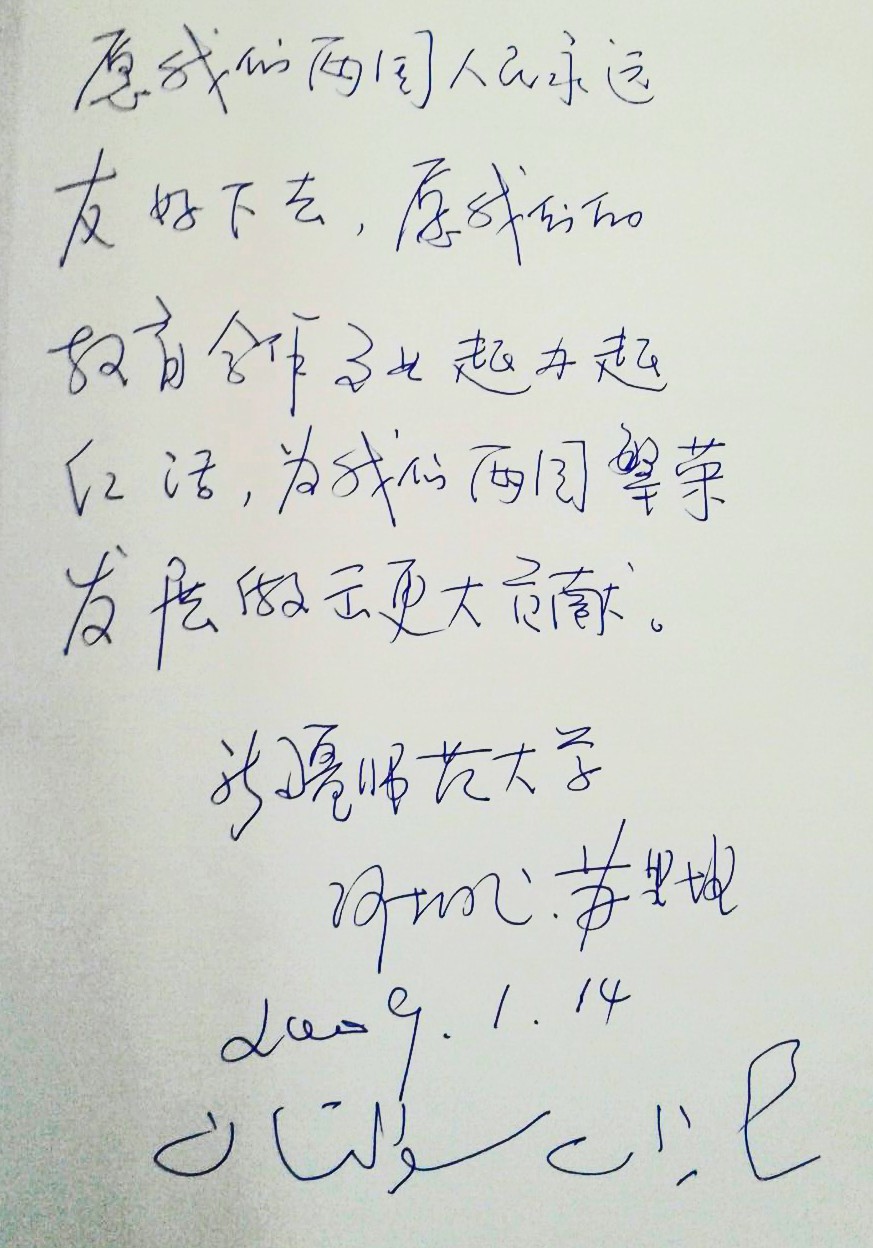 愿我们两国人民永远
友好下去，愿我们的
教育合作事业越办越
红活，为我们两国繁荣
发展做出更大贡献。
新疆师范大学
阿扎提·苏里坦
2009.1.14